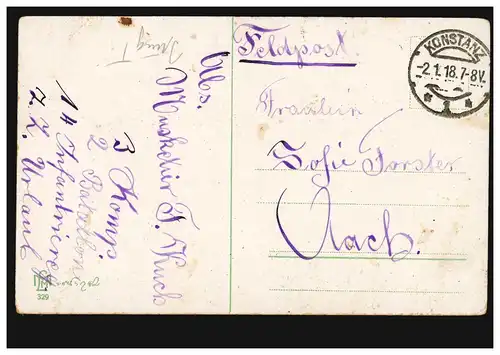 Feldpost.
KONSTANZ
-2.1.18.7-8V.
* 1 *
Fräulein
Sofie Forster
Aach.
Abs.
Musketir F. Kuch
3 Komp.
2 Batallion
14 Infantrie
z. Z. Urlaub
329